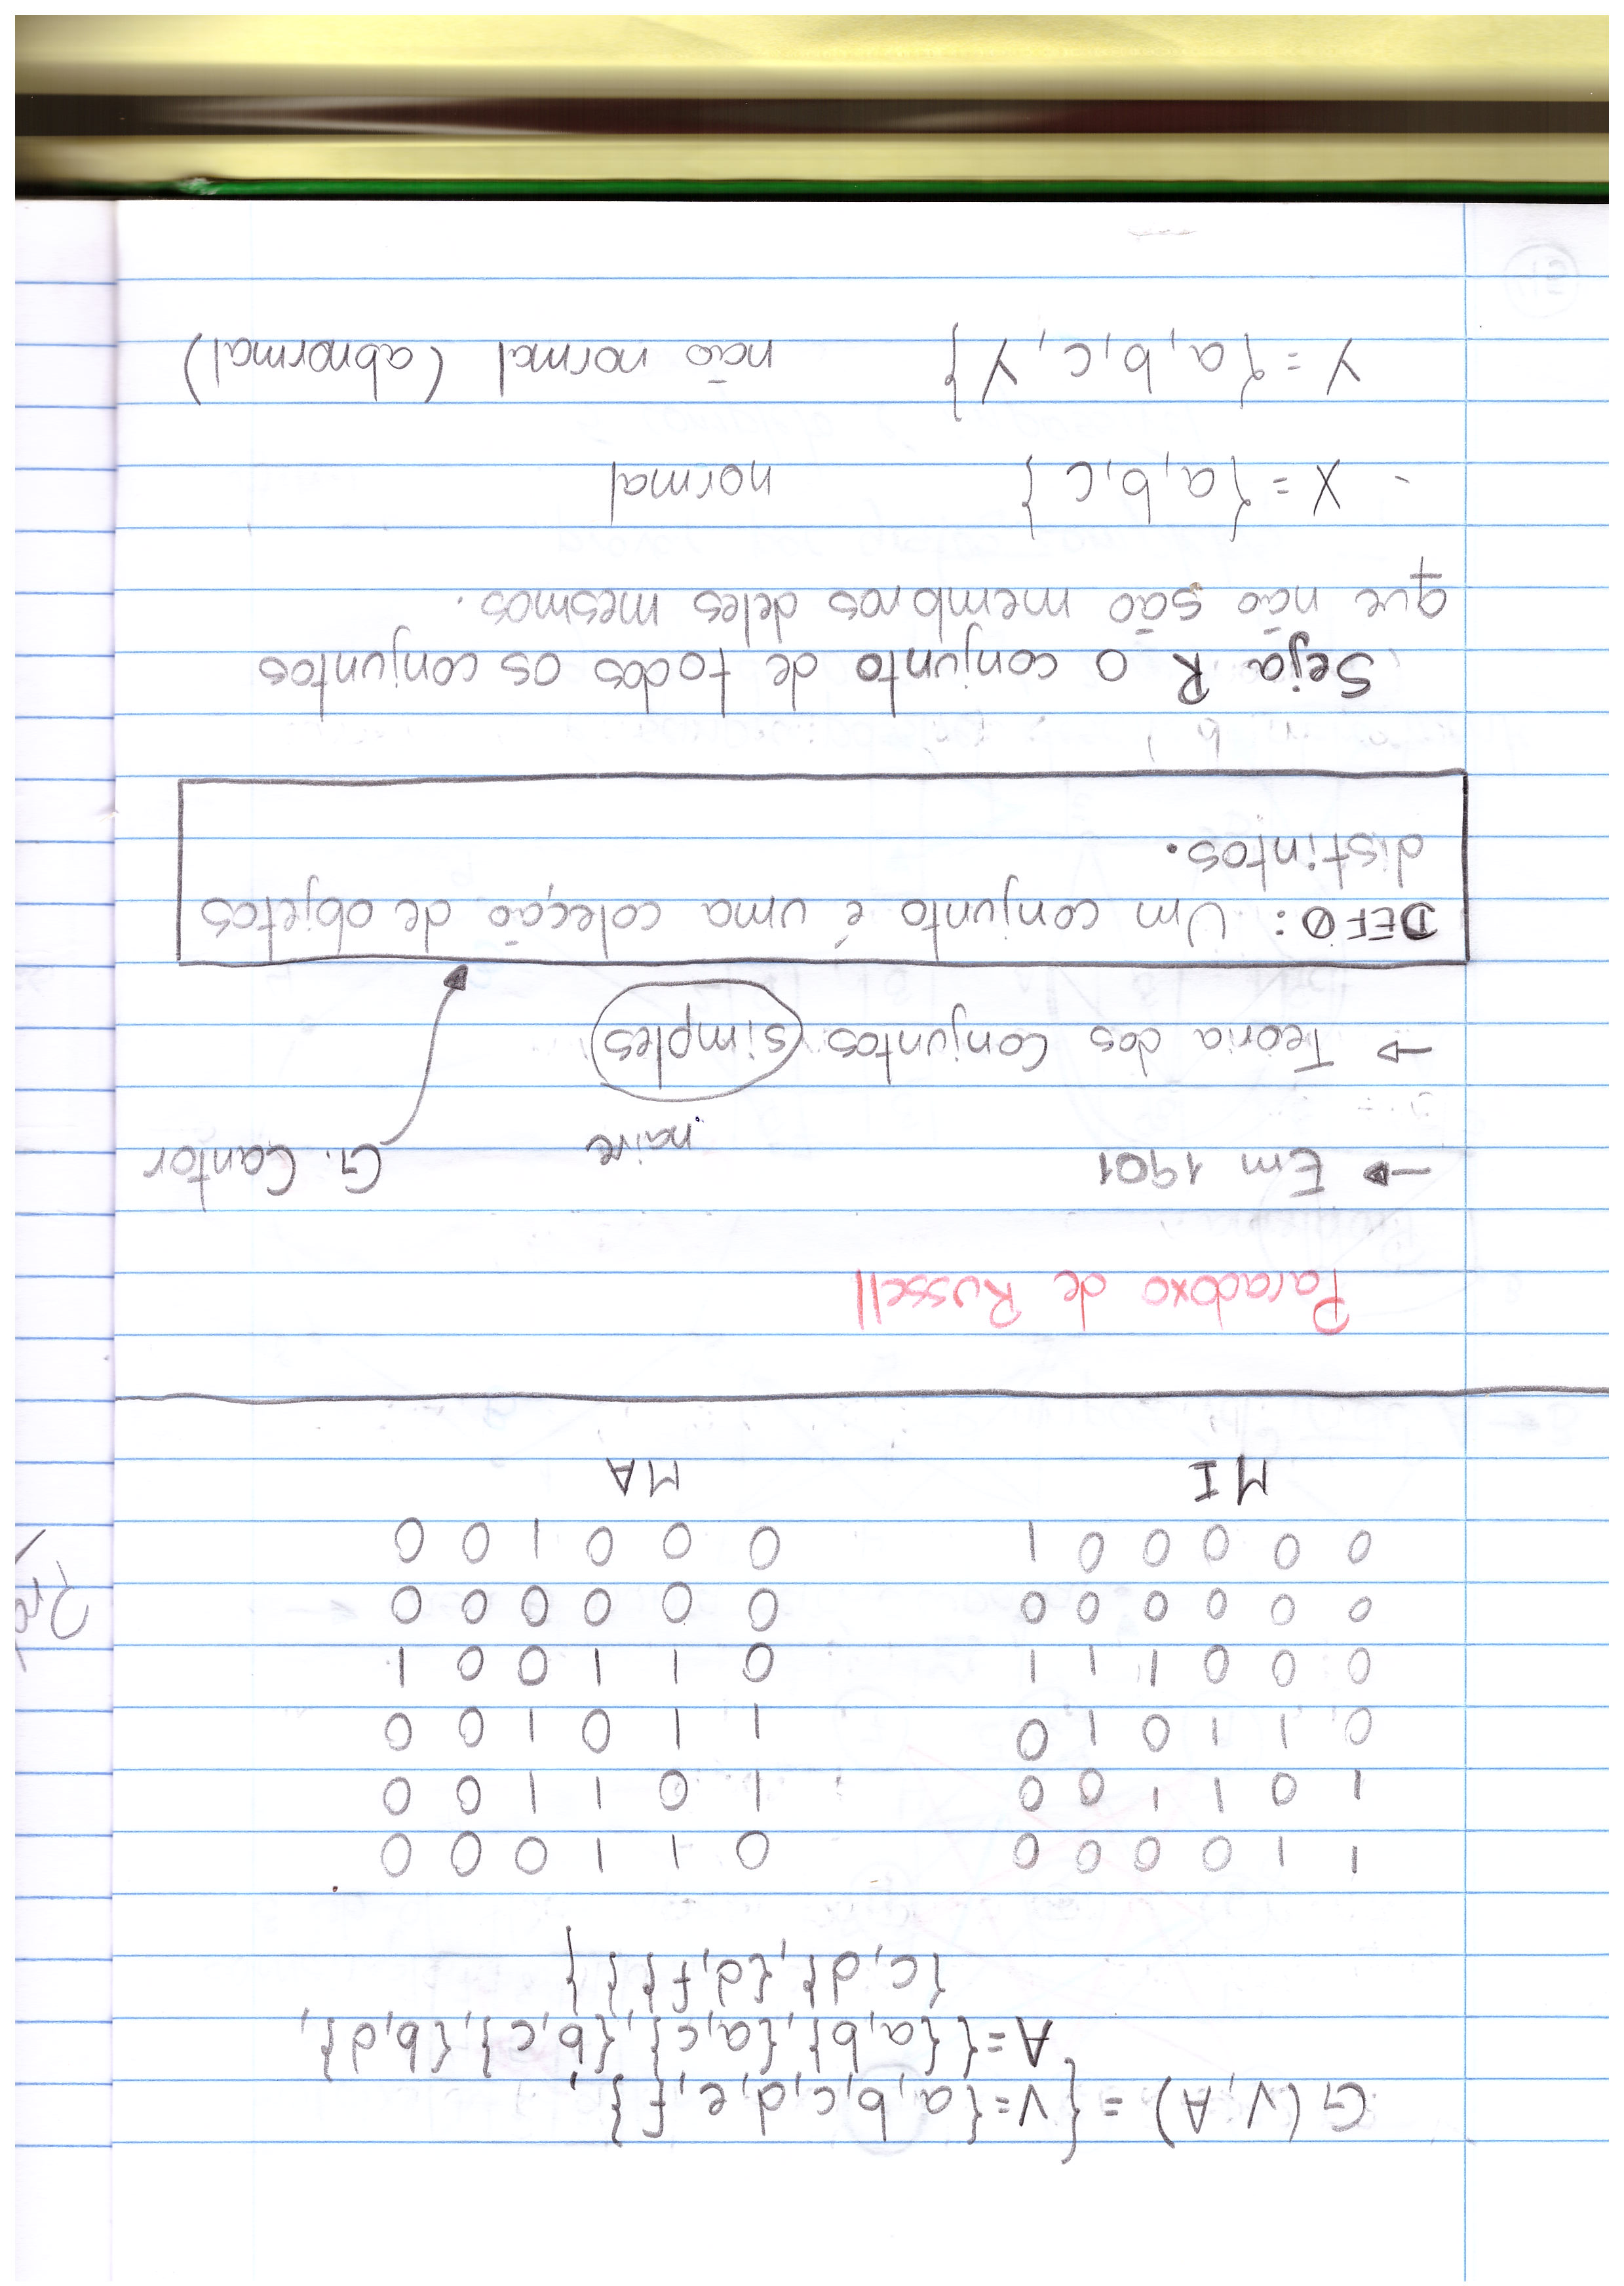 G(V,A) = { V={a,b,c,d,e,f},
A={{a,b},{a,c},{b,c},{b,d},
{c,d},{d,f}}}
1 1 0 0 0 0 0 1 1 0 0 0
1 0 1 1 0 0 1 0 1 1 0 0
0 1 1 0 1 0 1 1 0 1 0 0
0 0 0 1 1 1 0 1 1 0 0 1
0 0 0 0 0 0 0 0 0 0 0 0
0 0 0 0 0 1 0 0 0 1 0 0
MI MA
Paradoxo de Russell
→ Em 1901 G. Cantor
naive
→ Teoria dos Conjuntos simples
DEF0: Um conjunto é uma coleção de objetos
distintos.
Seja R o conjunto de todos os conjuntos
que não são membros deles mesmos.
- X = {a,b,c} normal
Y = {a,b,c,Y} não normal (abnormal)